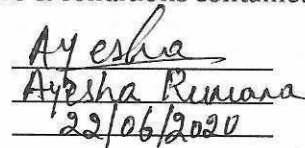 Ayesha
Ayesha Rumana
22/06/2020